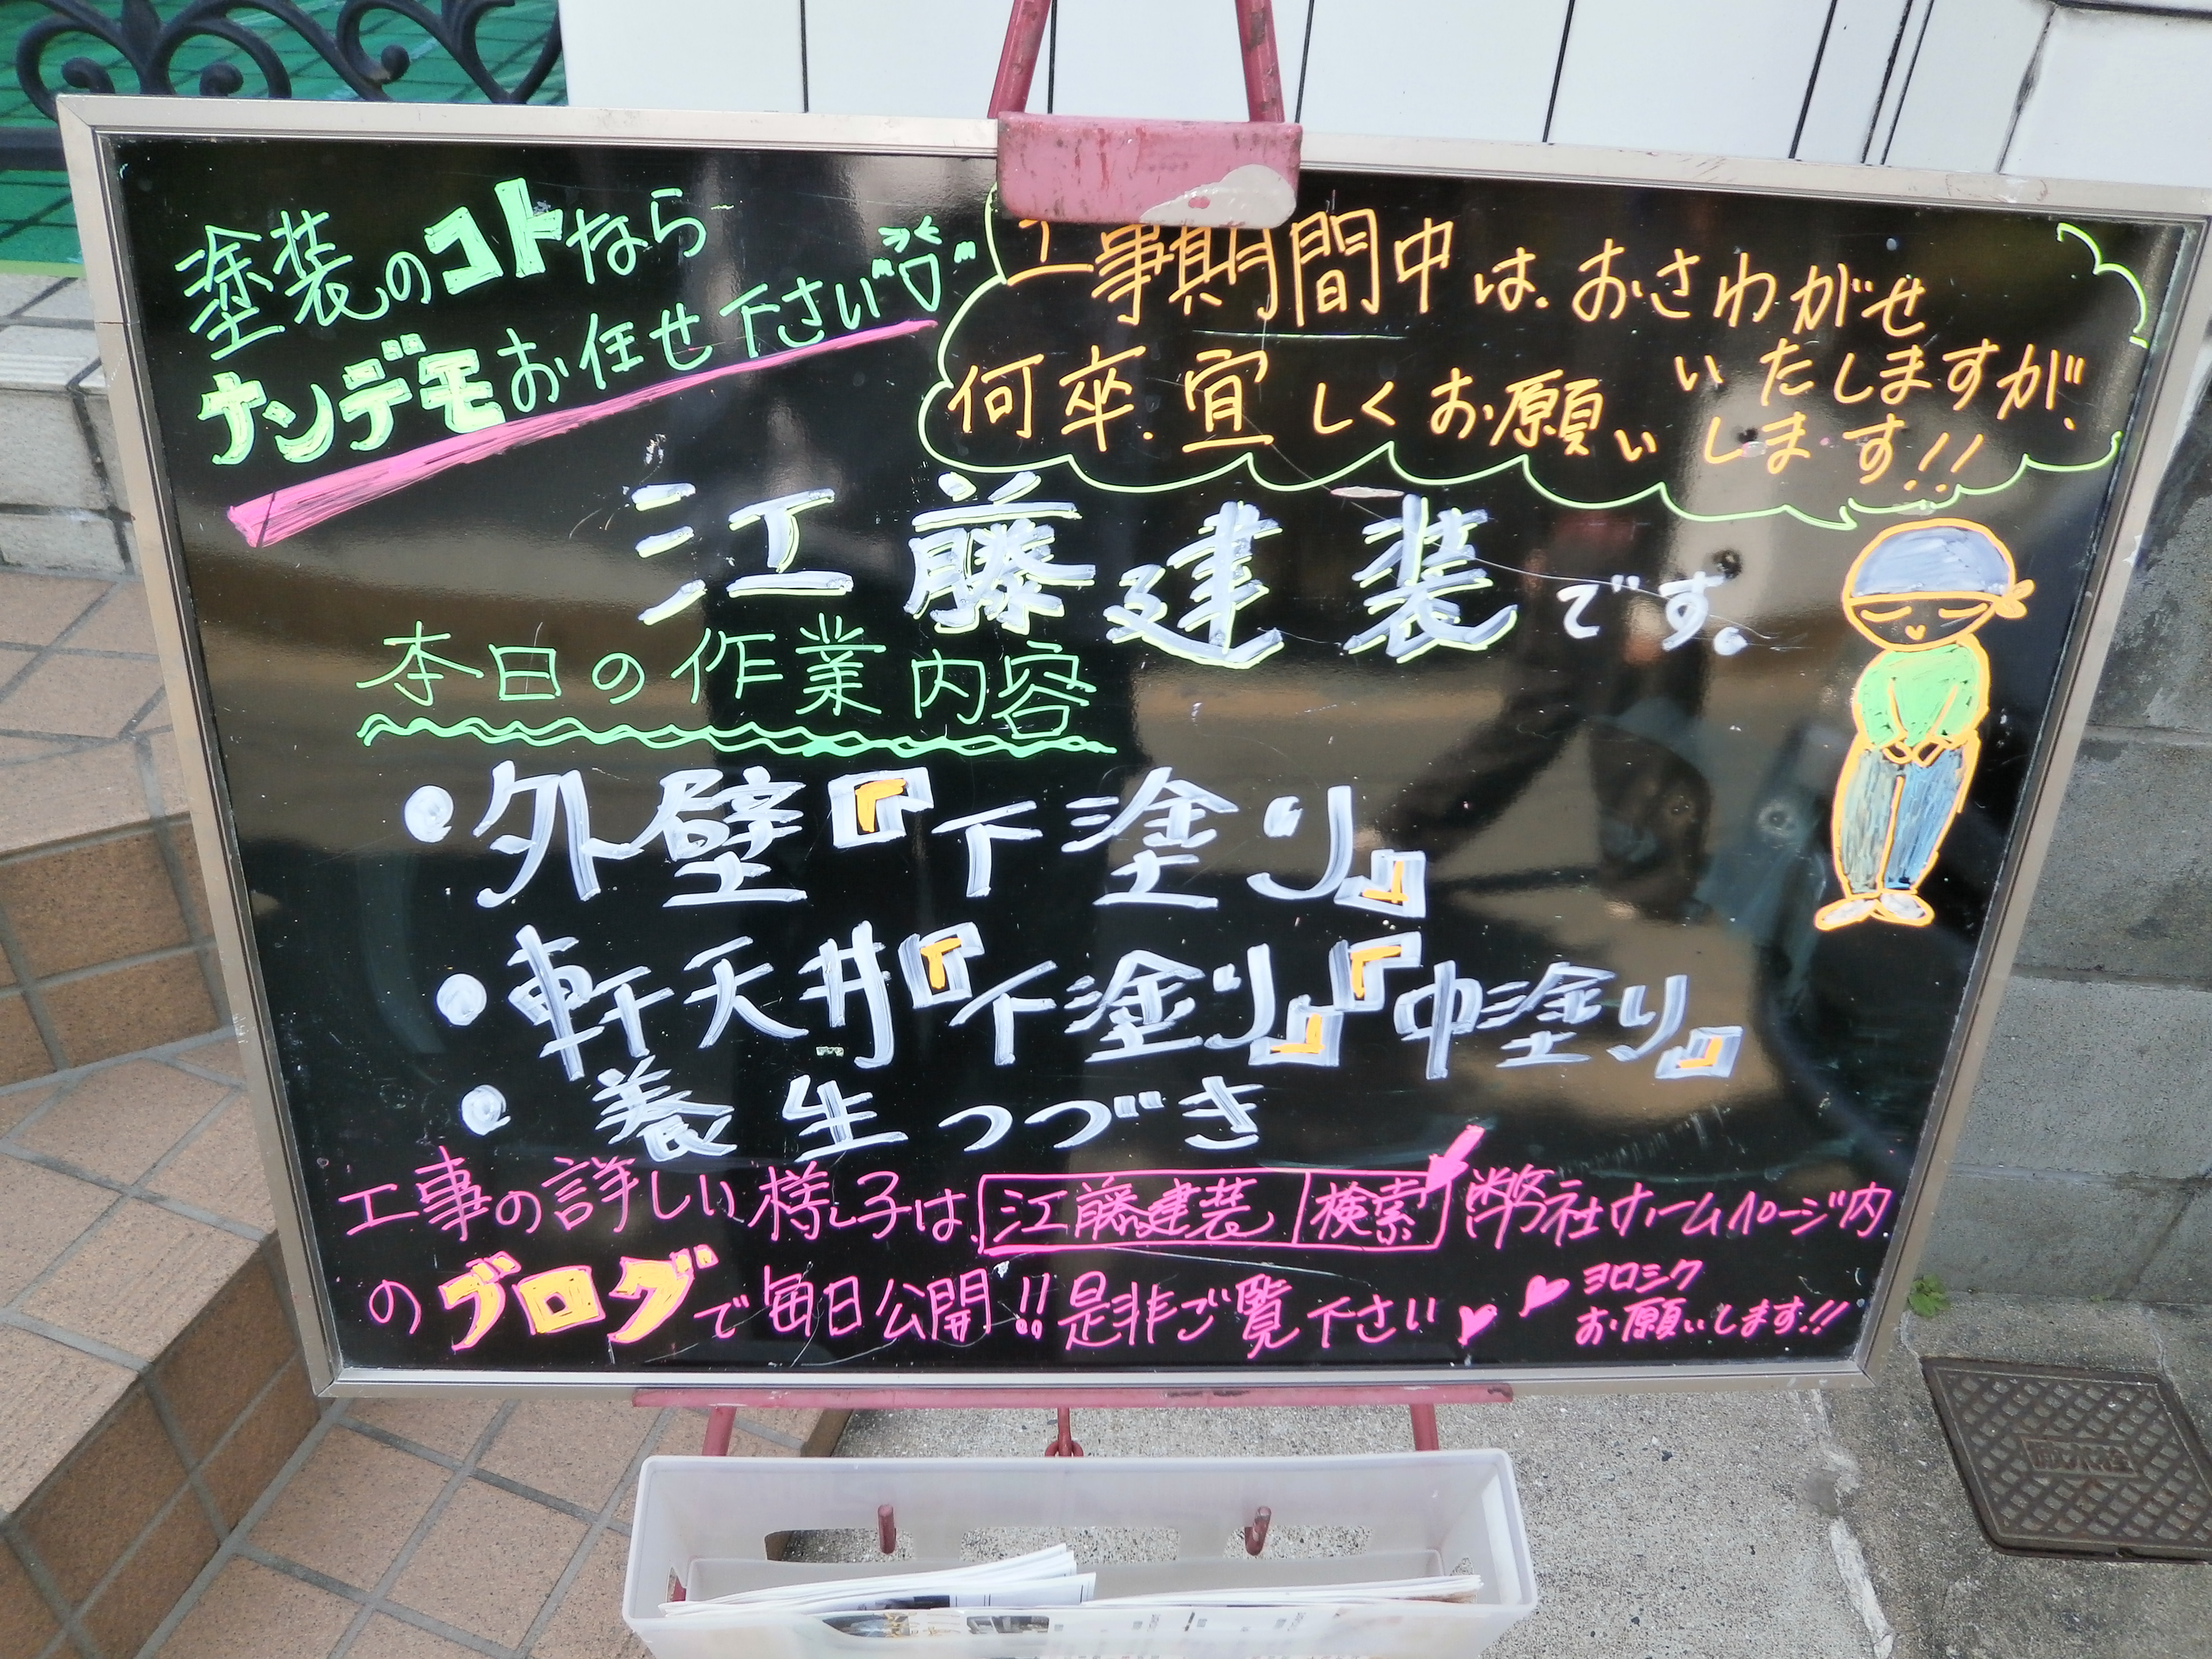 塗装のコトなら
ナンデモお任せ下さい
工事期間中は、おさわがせ
いたしますが、
何卒、宜しくお願いします!!
江藤建装です。
本日の作業内容
・外壁『下塗り』
・軒天井『下塗り』『中塗り』
・養生つづき
工事の詳しい様子は、江藤建装 検索 弊社ホームページ内
のブログで毎日公開!!是非ご覧下さい
ヨロシク
お願いします!!